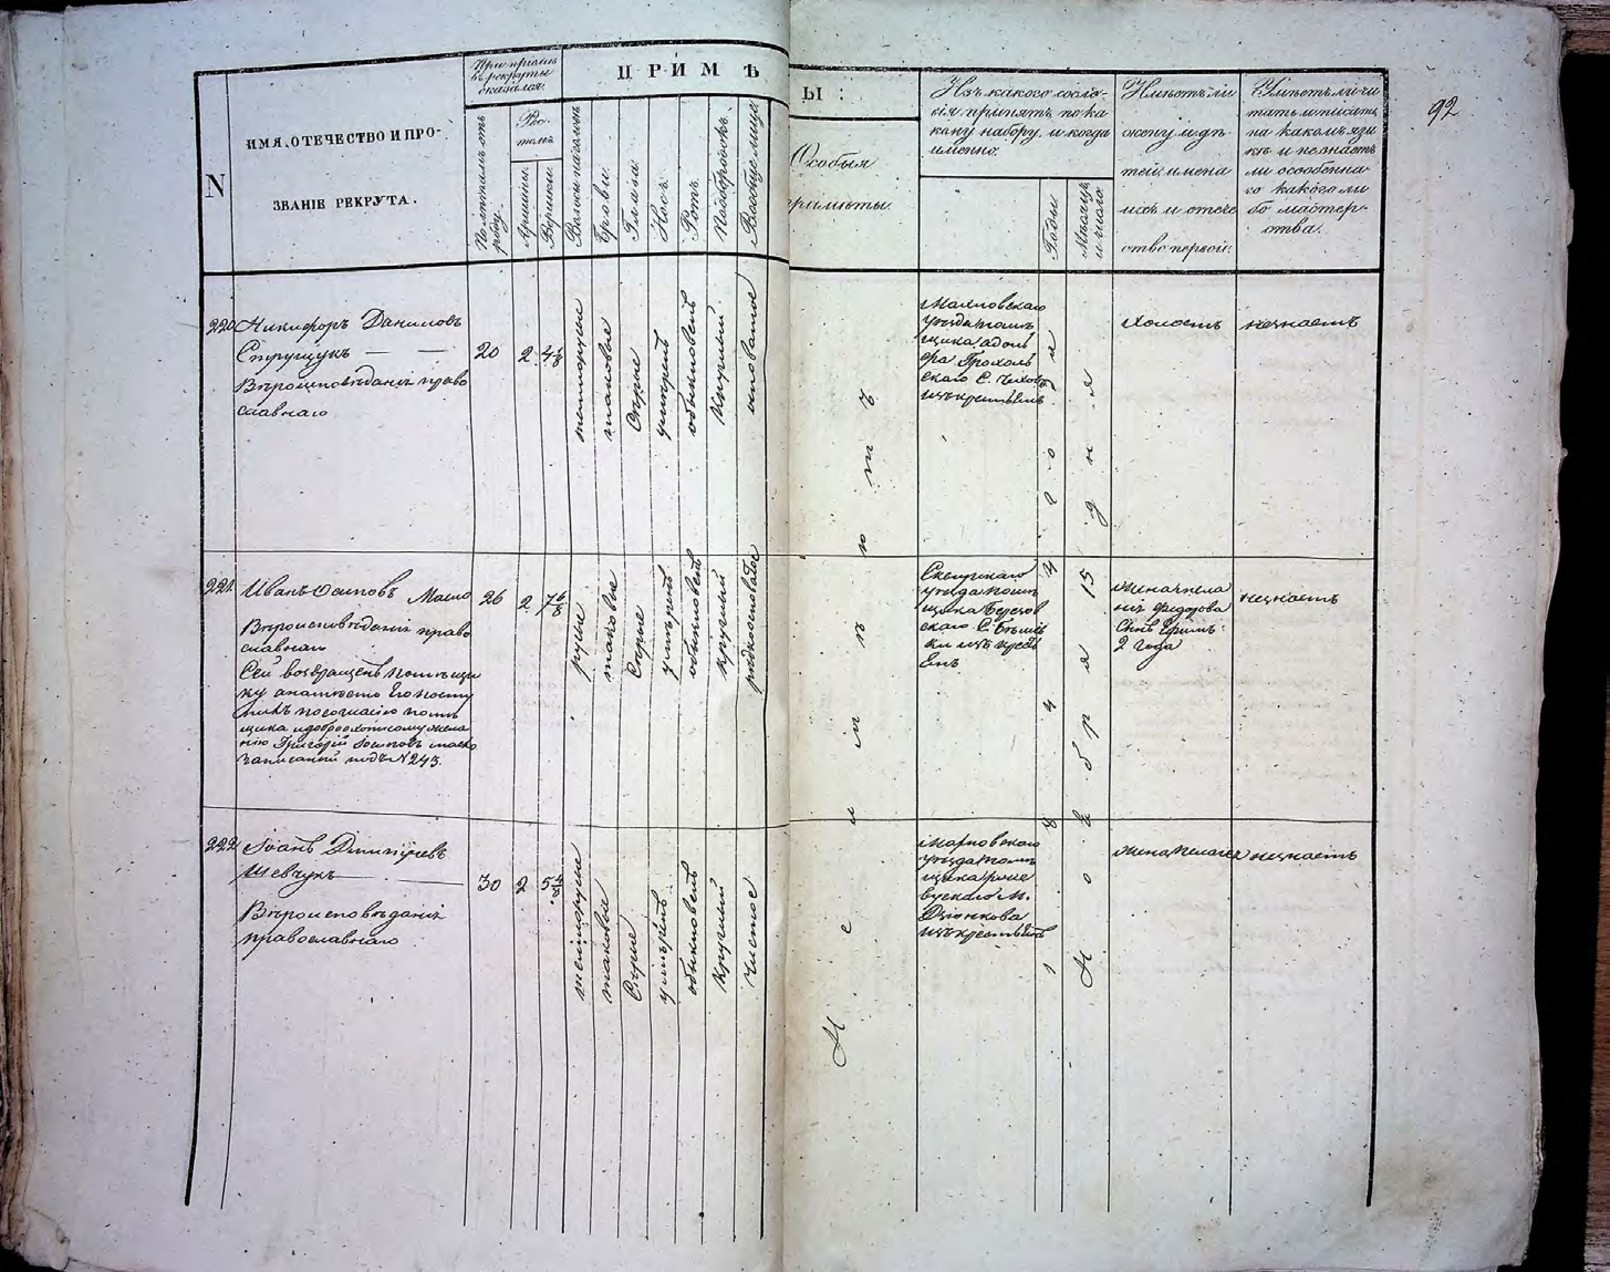 92
N
ИМЯ, ОТЕЧЕСТВО И ПРО-
ЗВАНІЕ РЕКРУТА.
При пріемѣ
въ рекруты
оказался
По лѣтамъ отъ
роду.
Рос-
томъ
Аршины.
Вершки.
ПРИМѢ
Волосы на головѣ
Брови.
Глаза.
Носъ.
Ротъ.
Подбородокъ.
Вообще лице
ТЫ:
Особыя
примѣты.
Изъ какого сосло-
вія принятъ по ка
кому набору, и когда
именно.
Годы
Мѣсяцъ
и число.
Имѣетъ ли
жену и дѣ
тей; имена
ихъ и отече
ство первой.
Умѣетъ ли чи
тать и писать
на какомъ язы
кѣ и не знаетъ
ли особенна
го какого ли
бо мастер-
ства.
220
Никифоръ Даниловъ
Струщукъ — —
Вѣроисповѣданія право
славнаго
20
2
4
темнорусые
таковые
Сѣрые
умѣренъ
обыкновенъ
Круглый
осповатое
Махновскаго
уѣзда помѣ
щика адоль
фа Грохоль
скаго С.
изъ крестьянъ
Холостъ
незнаетъ
221.
Иванъ Осиповъ Масло
Вѣроисповѣданія право
славнаго
Сей возвращенъ помѣщи
ку а намѣсто Его посту
пилъ по согласію помѣ
щика и добровольному жела
нію Григорій Осиповъ масло
записаной подъ N 243.
26
2
7 6/8
русые
таковые
Сѣрые
умѣренъ
обыкновенъ
круглый
рядкоосповатое
Сквирскаго
уѣзда помѣ
щика Березов
скаго С.
ки изъ крест
Енъ
жена Мела
нія Федорова
Сынъ Ефимъ
2 года
незнаетъ
222
Іоанъ Дмитріевъ
Шевчукъ —
Вѣроисповѣданія
православнаго
30
2
5 4/8
темнорусые
таковые
Сѣрые
умѣренъ
обыкновенъ
Круглый
Чистое
Махновскаго
уѣзда помѣ
щика
вускаго М.
Дзюнкова
изъ крестьянъ
жена Пелагея
незнаетъ
Неимѣютъ
184 года
Ноября 15 дня